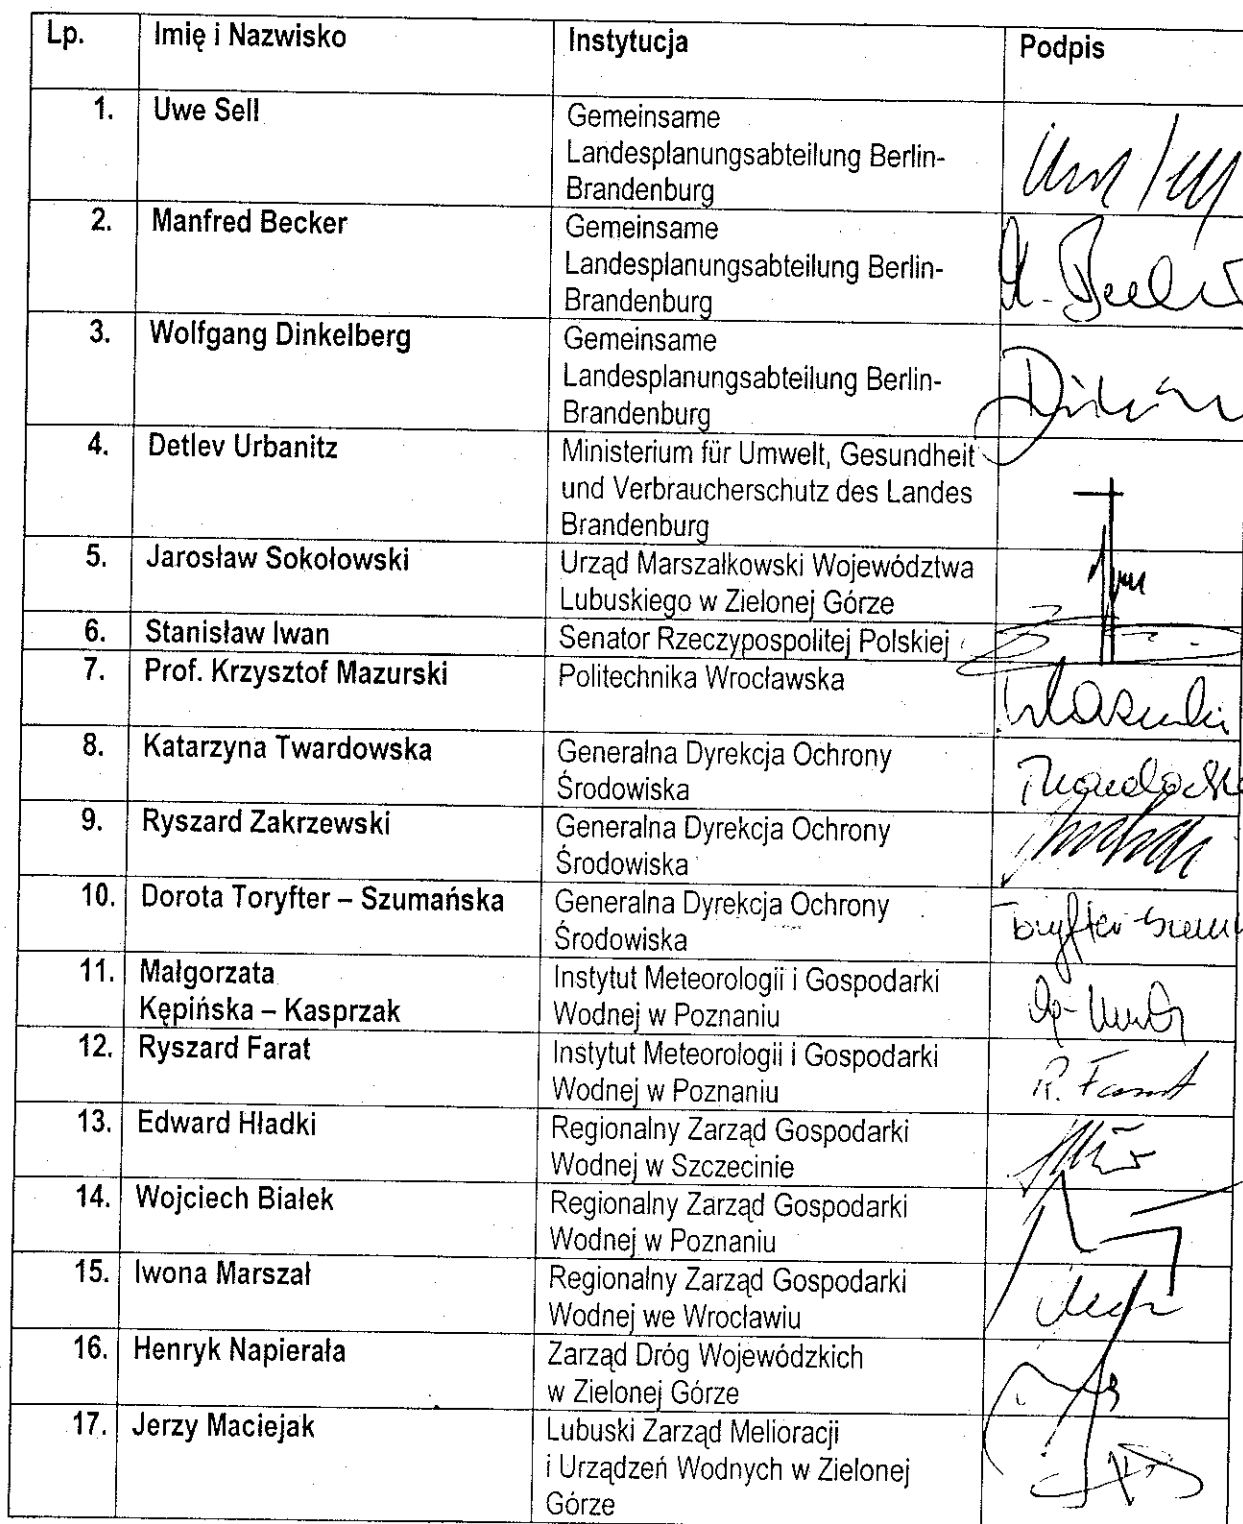 Lp. Imię i Nazwisko Instytucja Podpis
1. Uwe Sell Gemeinsame
Landesplanungsabteilung Berlin-
Brandenburg
2. Manfred Becker Gemeinsame
Landesplanungsabteilung Berlin-
Brandenburg
3. Wolfgang Dinkelberg Gemeinsame
Landesplanungsabteilung Berlin-
Brandenburg
4. Detlev Urbanitz Ministerium für Umwelt, Gesundheit
und Verbraucherschutz des Landes
Brandenburg
5. Jarosław Sokołowski Urząd Marszałkowski Województwa
Lubuskiego w Zielonej Górze
6. Stanisław Iwan Senator Rzeczypospolitej Polskiej
7. Prof. Krzysztof Mazurski Politechnika Wrocławska
8. Katarzyna Twardowska Generalna Dyrekcja Ochrony
Środowiska
9. Ryszard Zakrzewski Generalna Dyrekcja Ochrony
Środowiska
10. Dorota Toryfter – Szumańska Generalna Dyrekcja Ochrony
Środowiska
11. Małgorzata Instytut Meteorologii i Gospodarki
Kępińska – Kasprzak Wodnej w Poznaniu
12. Ryszard Farat Instytut Meteorologii i Gospodarki
Wodnej w Poznaniu R. Farat
13. Edward Hładki Regionalny Zarząd Gospodarki
Wodnej w Szczecinie
14. Wojciech Białek Regionalny Zarząd Gospodarki
Wodnej w Poznaniu
15. Iwona Marszał Regionalny Zarząd Gospodarki
Wodnej we Wrocławiu
16. Henryk Napierała Zarząd Dróg Wojewódzkich
w Zielonej Górze
17. Jerzy Maciejak Lubuski Zarząd Melioracji
i Urządzeń Wodnych w Zielonej
Górze